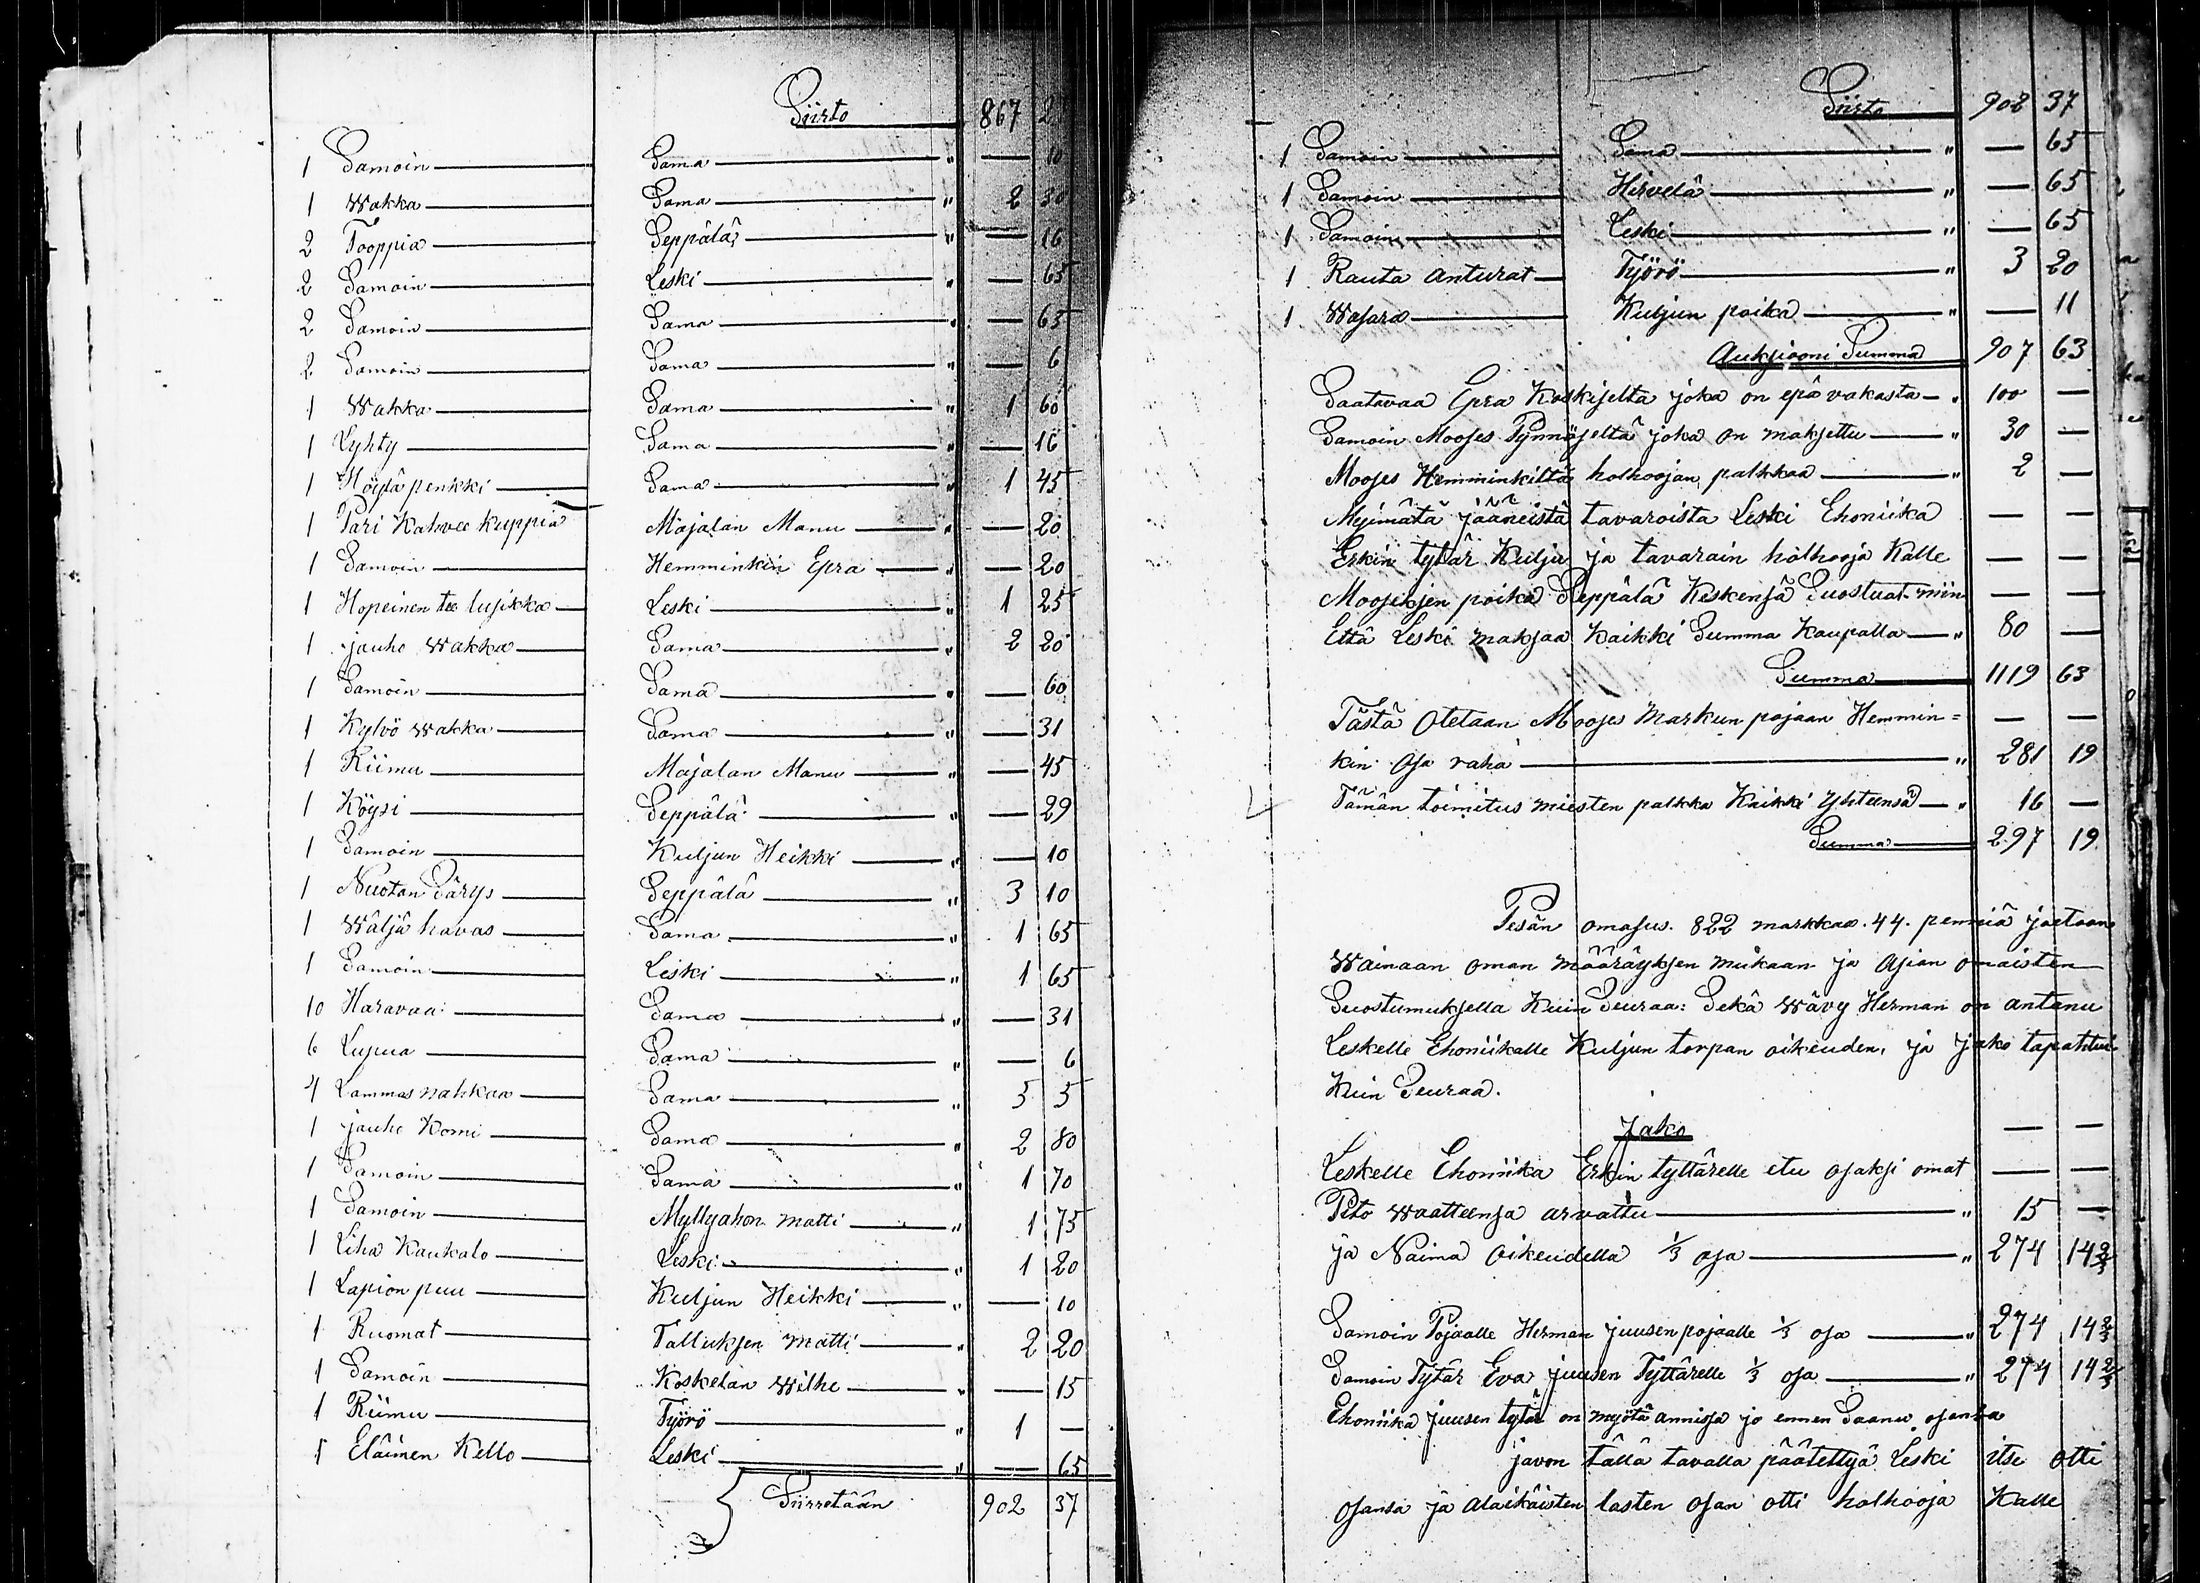 Siirto 867
1 Samoin Sama " — 10
1 Wakka Sama " 2 30
2 Tooppia Seppälä " — 16
2 Samoin Leski " — 65
2 Samoin Sama " — 65
2 Samoin Sama " — 6
1 Wakka Sama " 1 60
1 Lyhty Sama " — 16
1 Höylä penkki Sama " 1 45
1 Pari Kahvee Kuppia Majalan Manu " — 20
1 Samoin Hemminkin Epra " — 20
1 Hopeinen tee lusikka Leski " 1 25
1 jauho Wakka Sama " 2 20
1 Samoin Sama " — 60
1 Kylvö Wakka Sama " — 31
1 Riimu Majalan Manu " — 45
1 Köysi Seppälä " — 29
1 Samoin Kuljun Heikki " — 10
1 Nuotan Särys Seppälä " 3 10
1 Wäljä havas Sama " 1 65
1 Samoin Leski " 1 65
10 Haravaa Sama " — 31
6 Lupua Sama " — 6
4 Lammas nahkaa Sama " 5 5
1 jauho Komi Sama " 2 80
1 Samoin Sama " 1 70
1 Samoin Myllyahon matti " 1 75
1 Liha Kaukalo Leski " 1 20
1 Lapion puu Kuljun Heikki " — 10
1 Ruomat Talluksen matti " 2 20
1 Samoin Koskelan Wilhe " — 15
1 Riimu Työrö " 1 —
1 Eläimen Kello Leski " — 65
Siirretään 902 37
Siirto 902 37
1 Samoin Sama " — 65
1 Samoin Hirvelä " — 65
1 Samoin Leski " — 65
1 Rauta anturat Työrö " 3 20
1 Wasara Kuljun poika " — 11
Auksiooni Summa 907 63
Saatavaa Epra Koskiselta joka on epävakasta " 100 —
Samoin Mooses Pynnöseltä joka on maksettu " 30 —
Mooses Hemminkiltä holhoojan palkkaa " 2 —
Myimätä jääneistä tavaroista Leski Ehoniika — —
Erkin tytär Kulju ja tavarain holhooja Kalle — —
Mooseksen poika Seppälä Keskensä Suostuat niin — —
Että Leski maksaa Kaikki Summa Kaupalla " 80 —
Summa 1119 63
Tästä Otetaan Mooses Markun pojaan Hemmin= — —
kin Osa raha " 281 19
Tämän toimitus miesten palkka Kaikki Yhteensä " 16 —
Summa 297 19
Pesän omasus. 822 markkaa. 44. penniä jaetaan
Wainaan oman määräyksen mukaan ja Asian omaisten
Suostumuksella Kuin Seuraa: Sekä Wävy Herman on antanu
Leskelle Ehoniikalle Kuljun torpan oikeuden, ja jako tapahtui
Kuin Seuraa.
Jako — —
Leskelle Ehoniika Erkin tyttärelle etu osaksi omat — —
Pito Waatteensa arvattu " 15 —
ja Naima Oikeudella 1/3 osa " 274 14 2/3
Samoin Pojaalle Herman Juusenpojaalle 1/3 osa " 274 14 2/3
Samoin Tytär Eva Juusen Tyttärelle 1/3 osa " 274 14 2/3
Ehoniika Juusen tytär on myötä annissa jo ennen Saanu osansa
javon tällä tavalla päätettyä Leski itse otti
osansa ja alaikäisten lasten osan otti holhooja Kalle